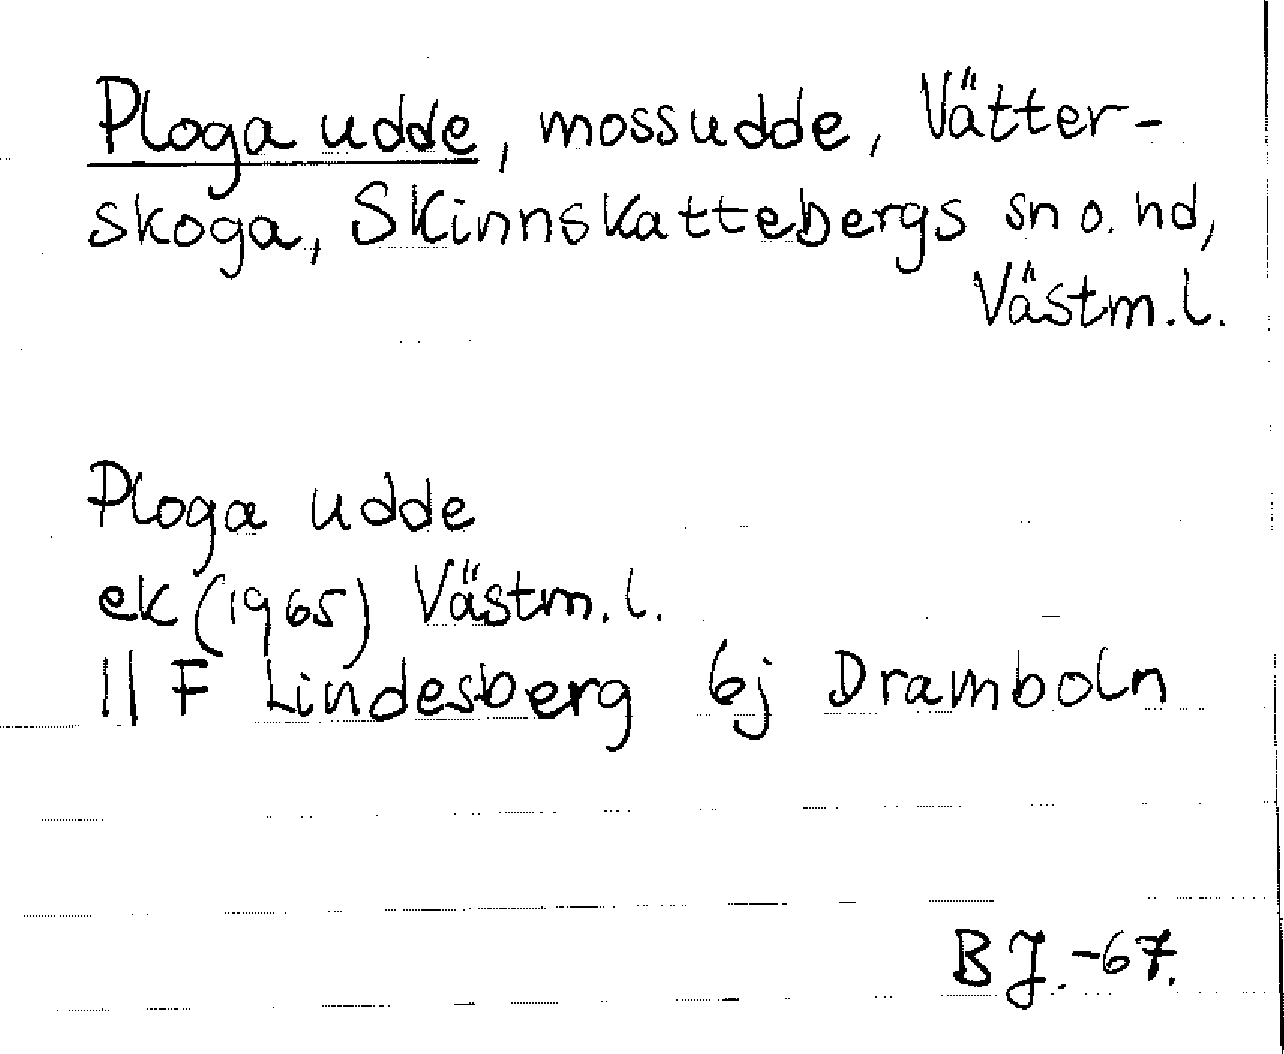 Ploga udde, mossudde, Vätter-
skoga, Skinnskattebergs sn o. hd,
Västm.l.
Ploga udde
ek (1965) Västm.l.
11 F Lindesberg 6j Dramboln
BJ.-67.